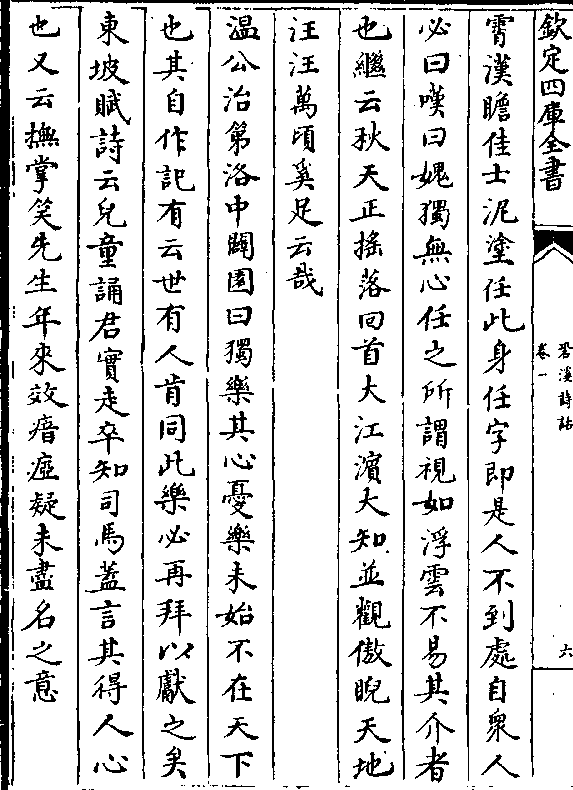 欽定四庫全書
䂬溪詩話
卷一
六
霄漢瞻佳士泥塗任此身任字即是人不到處自衆人
必曰嘆曰媿獨無心任之所謂視如浮雲不易其介者
也繼云秋天正摇落回首大江濵大知並觀傲睨天地
汪汪萬頃奚足云哉
温公治第洛中闢園曰獨樂其心憂樂未始不在天下
也其自作記有云世有人肯同此樂必再拜以獻之矣
東坡賦詩云兒童誦君實走卒知司馬蓋言其得人心
也又云撫掌笑先生年來效瘖瘂疑未盡名之意